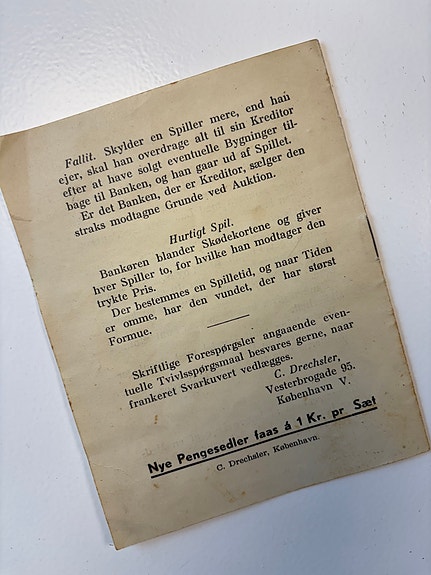 Fallit. Skylder en Spiller mere, end han
ejer, skal han overdrage alt til sin Kreditor
efter at have solgt eventuelle Bygninger til-
bage til Banken, og han gaar ud af Spillet.
Er det Banken, der er Kreditor, sælger den
straks modtagne Grunde ved Auktion.
Hurtigt Spil.
Bankøren blander Skødekortene og giver
hver Spiller to, for hvilke han modtager den
trykte Pris.
Der bestemmes en Spilletid, og naar Tiden
er omme, har den vundet, der har størst
Formue.
Skriftlige Forespørgsler angaaende even-
tuelle Tvivlsspørgsmaal besvares gerne, naar
frankeret Svarkuvert vedlægges.
C. Drechsler,
Vesterbrogade 95.
København V.
Nye Pengesedler faas á 1 Kr. pr Sæt
C. Drechsler, København.